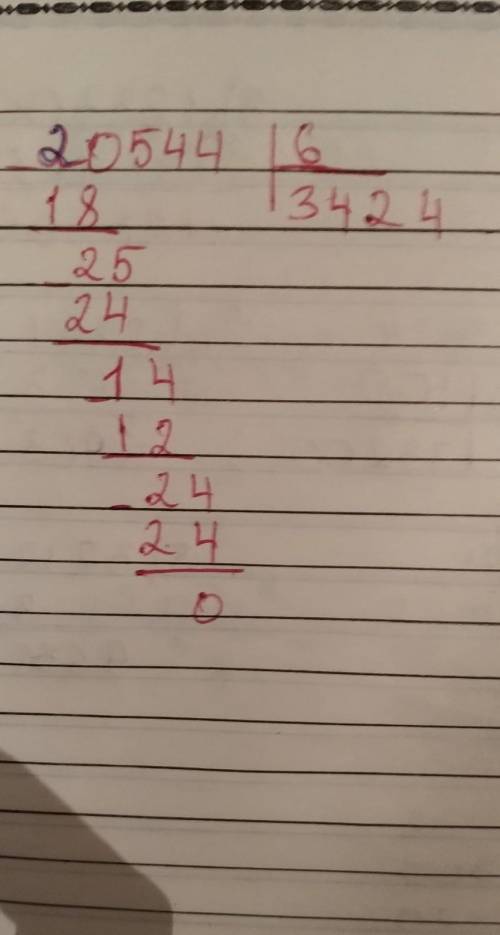 - 20544 | 6
18 3424
- 25
24
- 14
12
- 24
24
0